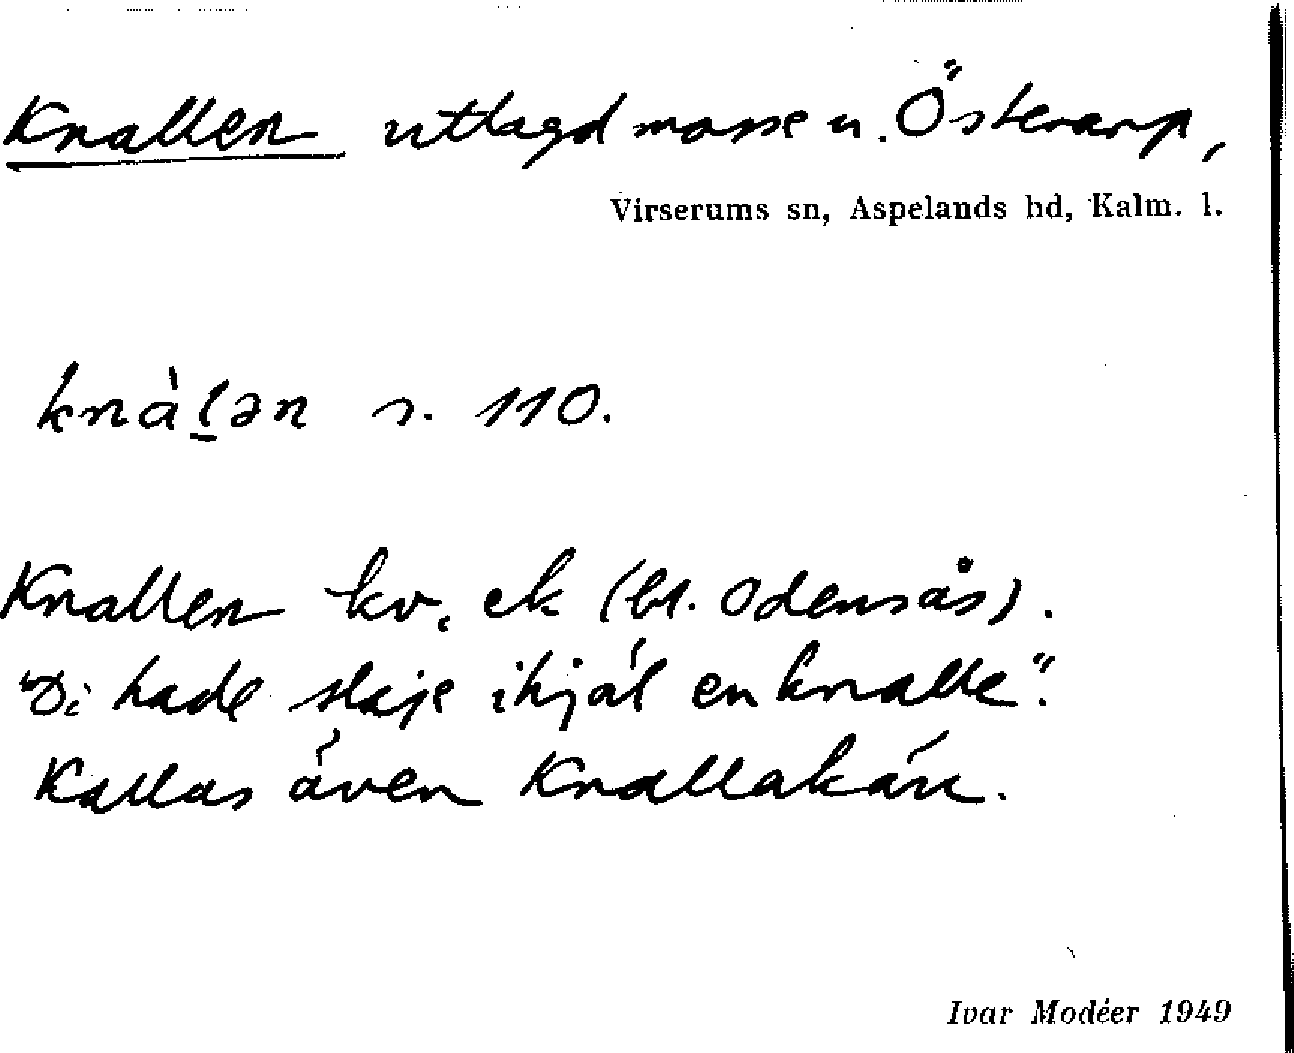 Knallen utlagd mosse u. Österarp,
Virserums sn, Aspelands hd, Kalm. l.
knàḻən s. 110.
Knallen kv. ek (bl. Odensås).
"Di hade slaje ihjäl en knalle".
Kallas även Knallakärr.
Ivar Modéer 1949